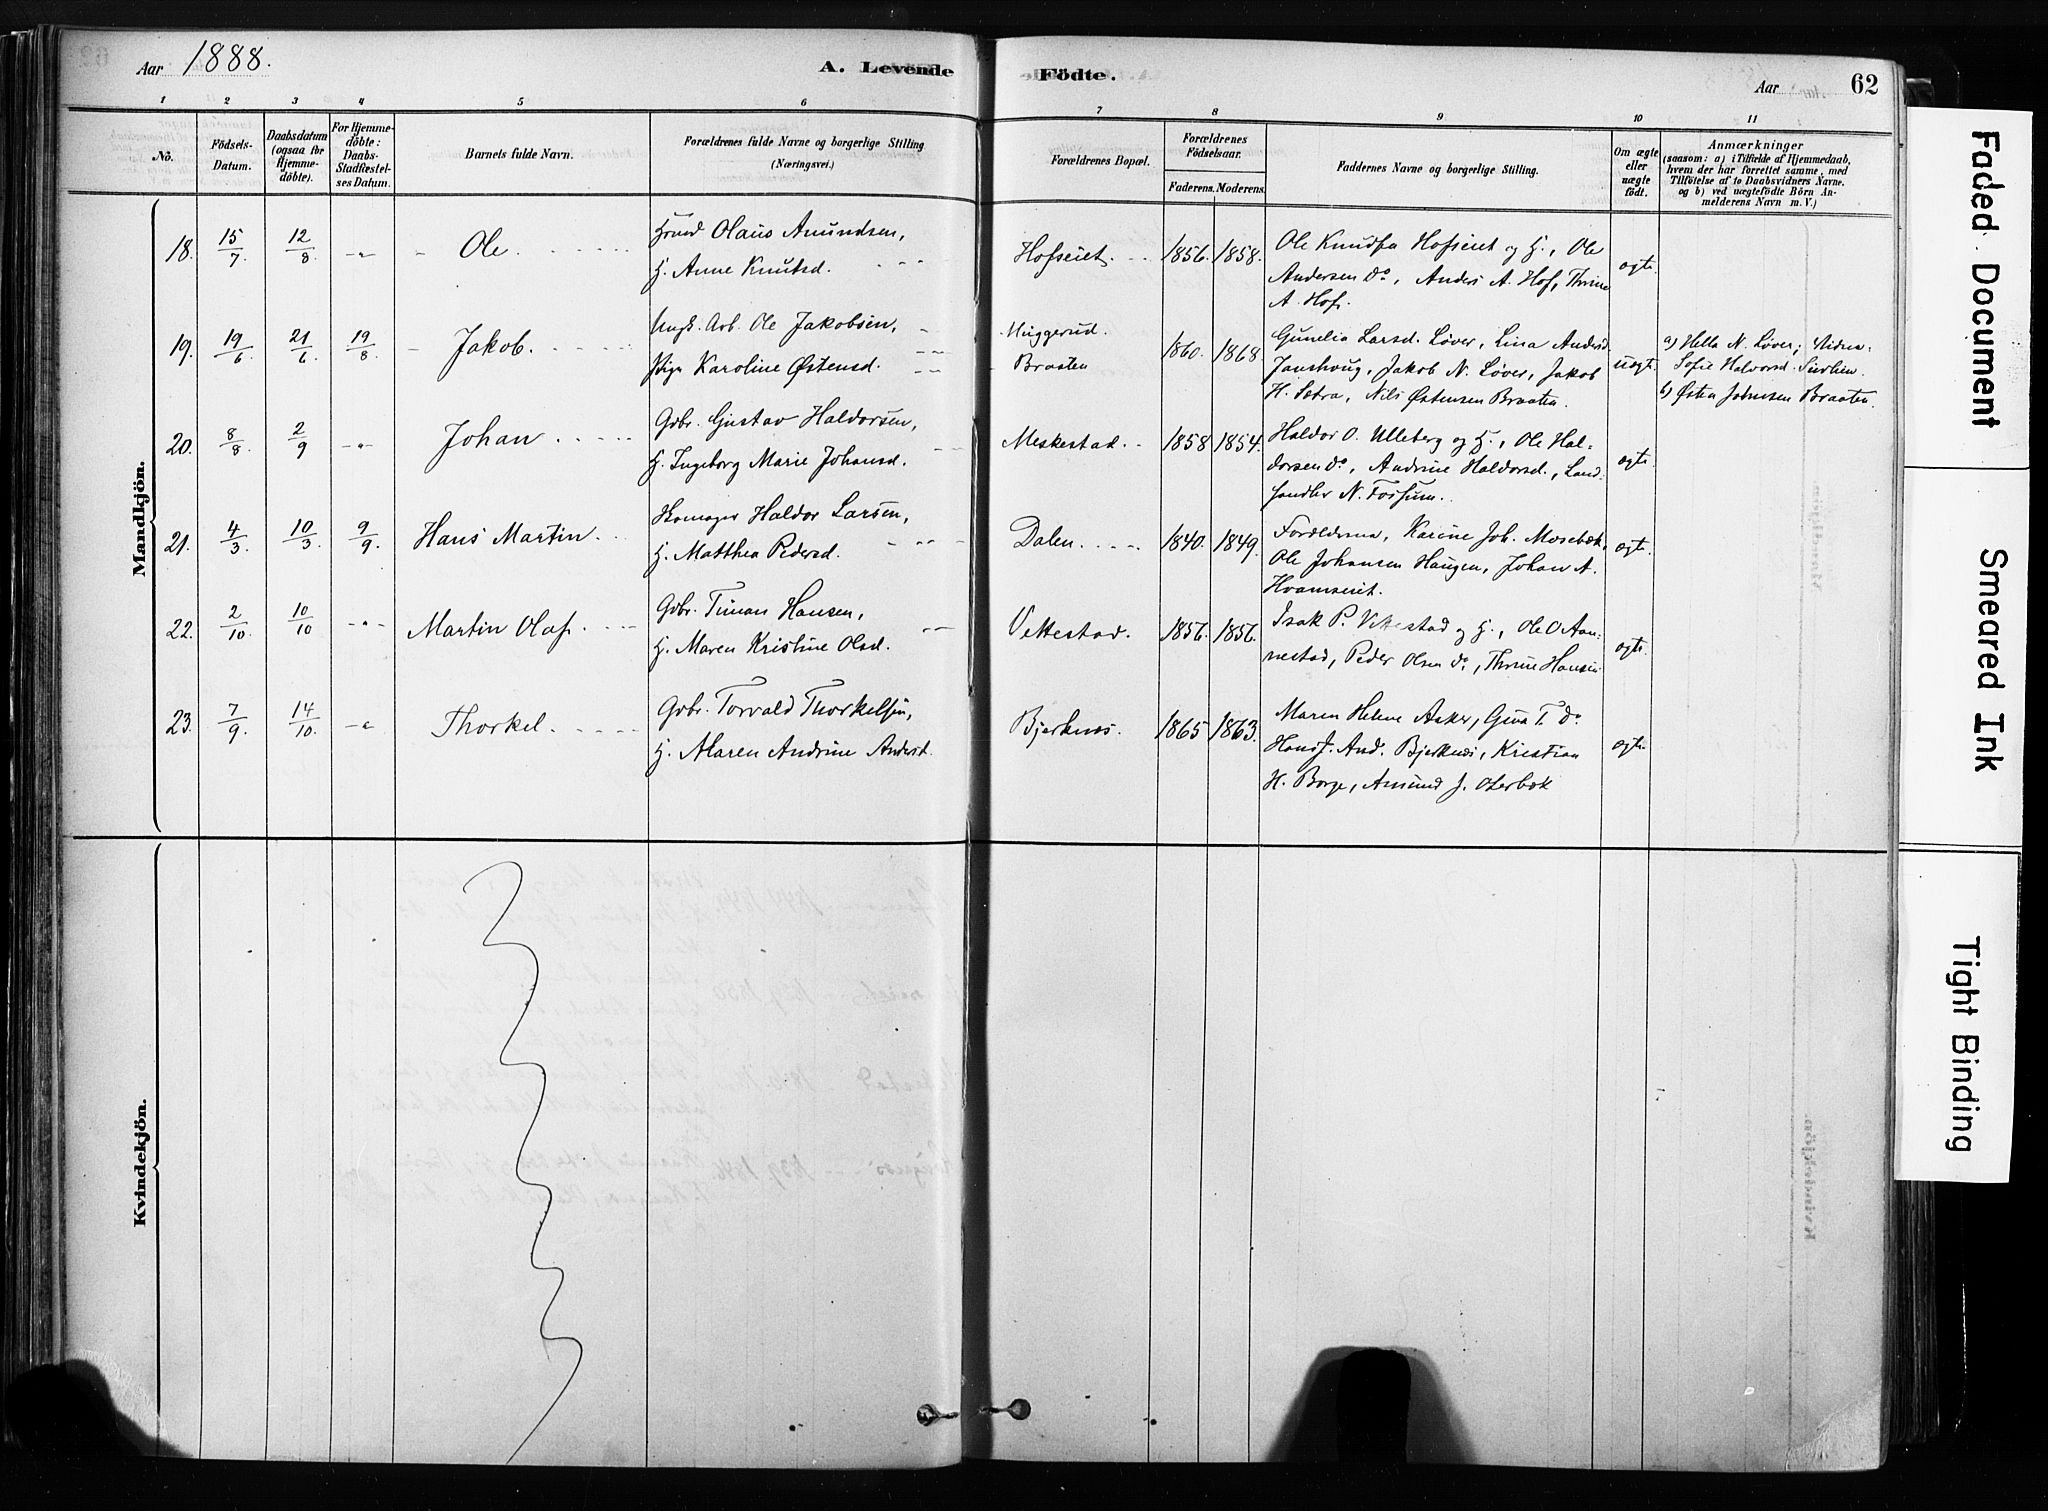 Aar 1888.
A. Levende Födte.
Aar 62
1 2 3 4 5 6 7 8 9 10 11
No.
Födsels-Datum.
Daabsdatum (ogsaa for Hjemme-döbte).
For Hjemme-döbte: Daabs-Stadfæstel-ses Datum.
Barnets fulde Navn.
Forældrenes fulde Navne og borgerlige Stilling (Næringsvei.)
Forældrenes Bopæl.
Forældrenes Födselsaar.
Faderens. Moderens.
Faddernes Navne og borgerlige Stilling.
Om ægte eller uægte födt.
Anmærkninger
(saasom: a) i Tilfælde af Hjemmedaab,
hvem der har forrettet samme, med
Tilföielse af to Daabsvidners Navne.
og b) ved uægtefödte Börn An-
melderens Navn m. V.)
Mandkjön.
18. 15/7 12/8 -"- Ole
Olaus Amundsen,
H. Anne Knutsd.
Hofseiet. 1856. 1858.
Ole Hofseiet og H., Ole
Andersen Do, Anders A. Hof, Thrine
A. Hof.
ægte.
19. 19/6 21/6 19/8 Jakob.
Ungk. Arb. Ole Jakobsen,
Pige Karoline Østensd.
Muggerud.
Braaten
1860. 1868.
Gunelia Larsd. Løver, Lina Andersd.
Jakob N. Løver, Jakob
H. Sætra, Nils Østensen Braaten.
uægte.
a) Hella N. Løver;
Sofie Halvorsd.
b) Østen Johnsen Braaten.
20. 8/8 2/9 -"- Johan
Gbr. Gustav Haldorsen,
H. Ingeborg Marie Johansd.
Meskestad. 1858 1854.
Haldor O. Ulleberg og H., Ole Hal-
dorsen do, Andrine Haldorsd., Land-
handler N. Fossum.
ægte.
21. 4/3 10/3 9/9 Hans Martin
Skomager Haldor Larsen,
H. Matthea Pedersd.
Dalen. 1840. 1849.
Forældrene, Karine Joh. Mosebæk,
Ole Johansen Haugen, Johan A.
Hvamseiet.
ægte.
22. 2/10 10/10 -"- Martin Olaf.
Gbr. Timan Hansen,
H. Maren Kristine Olsd.
Vettestad. 1856. 1856.
Isak P. Vettestad og H., Ole O Aan-
nestad, Peder Olsen do, Thrine Hansen
ægte.
23. 7/9 14/10 -"- Thorkel.
Gbr. Torvald Thorkelsen,
H. Maren Andrine Andersd.
Bjerknes. 1865 1863.
Maren Helene Aaker, Gina T. do
Hans J. And. Bjerknes, Kristian
H. Borge, Amund J. Oterbæk
ægte.
Kvindekjön.
Faded Document
Smeared Ink
Tight Binding